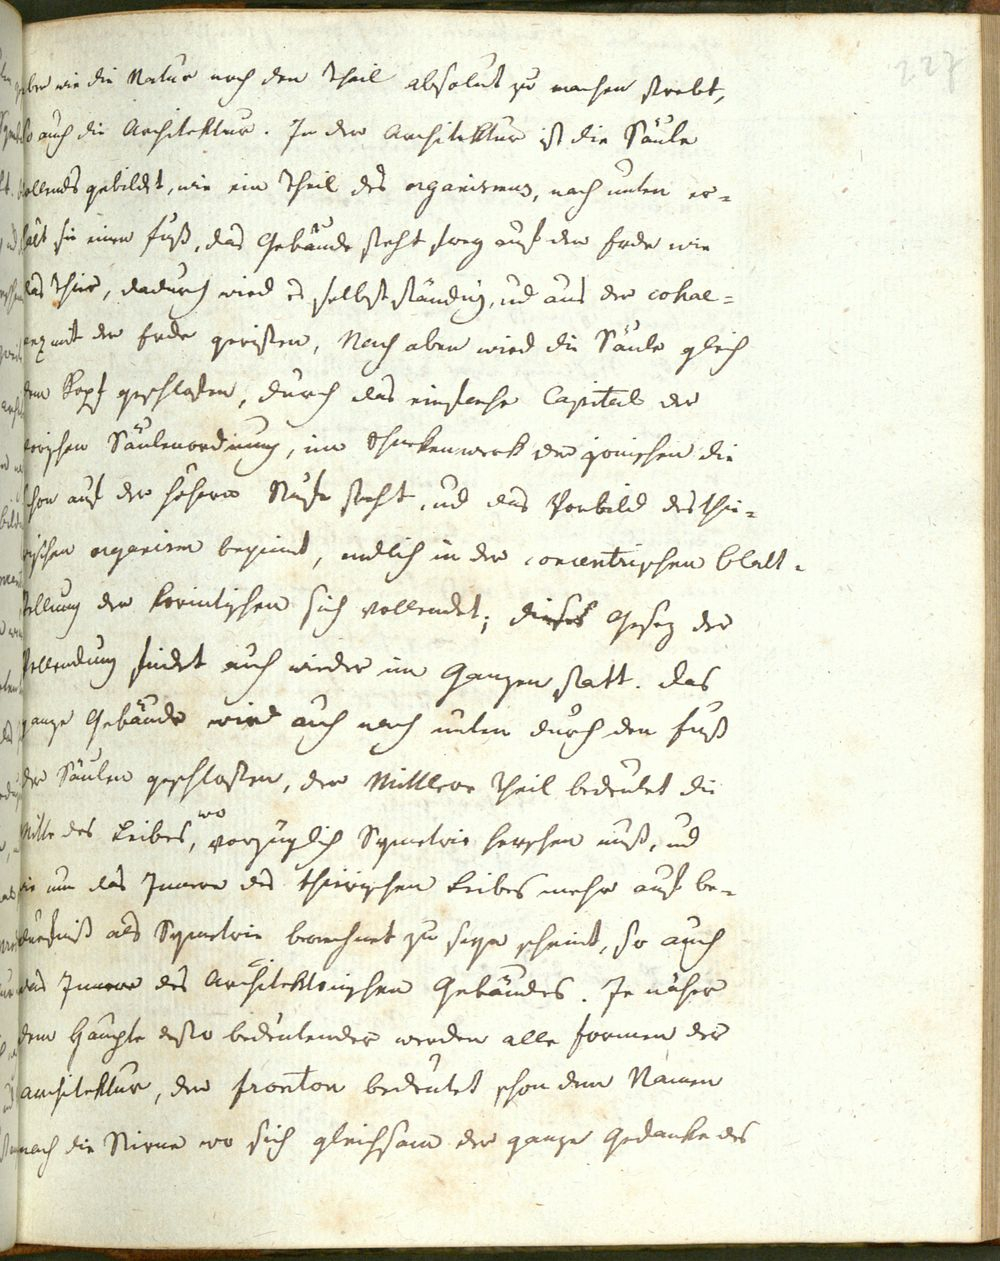 227
aber wie die Natur noch den Theil absolut zu machen strebt,
so auch die Architektur. In der Architektur ist die Säule
vollends gebildet, wie ein Theil des organismus, nach unten er-
hält sie einen Fuß, das Gebäude steht frey auf der Erde wie
das Thier, dadurch wird es selbstständig, ud aus der cohae-
renz mit der Erde gerißen, Nach oben wird die Säule gleich
dem Kopf geschloßen, durch das einfache Capitael der
dorischen Säulenordnung, im Schneckenwerk der jonischen die
schon auf der höhern Stufe steht, ud das Vorbild des thie-
rischen organism beginnt, endlich in der concentrischen Blatt-
stellung der korintischen sich vollendet; dieses Gesez der
Vollendung findet auch wieder im Ganzen statt. Das
ganze Gebäude wird auch nach unten durch den Fuß
der Säulen geschloßen, der Mittlere Theil bedeutet die
Mitte des Leibes, wo vorzüglich Symetrie herschen muß, ud
wie nun das Innere des thierischen Leibes mehr auf be-
dürfniß als Symetrie berechnet zu seyn scheint, so auch
das Innere des Architektonischen Gebäudes. Je näher
dem Haupte desto bedeutender werden alle formen der
architektur, der fronton bedeutet schon dem Namen
nach die Stirne wo sich gleichsam der ganze Gedanke des